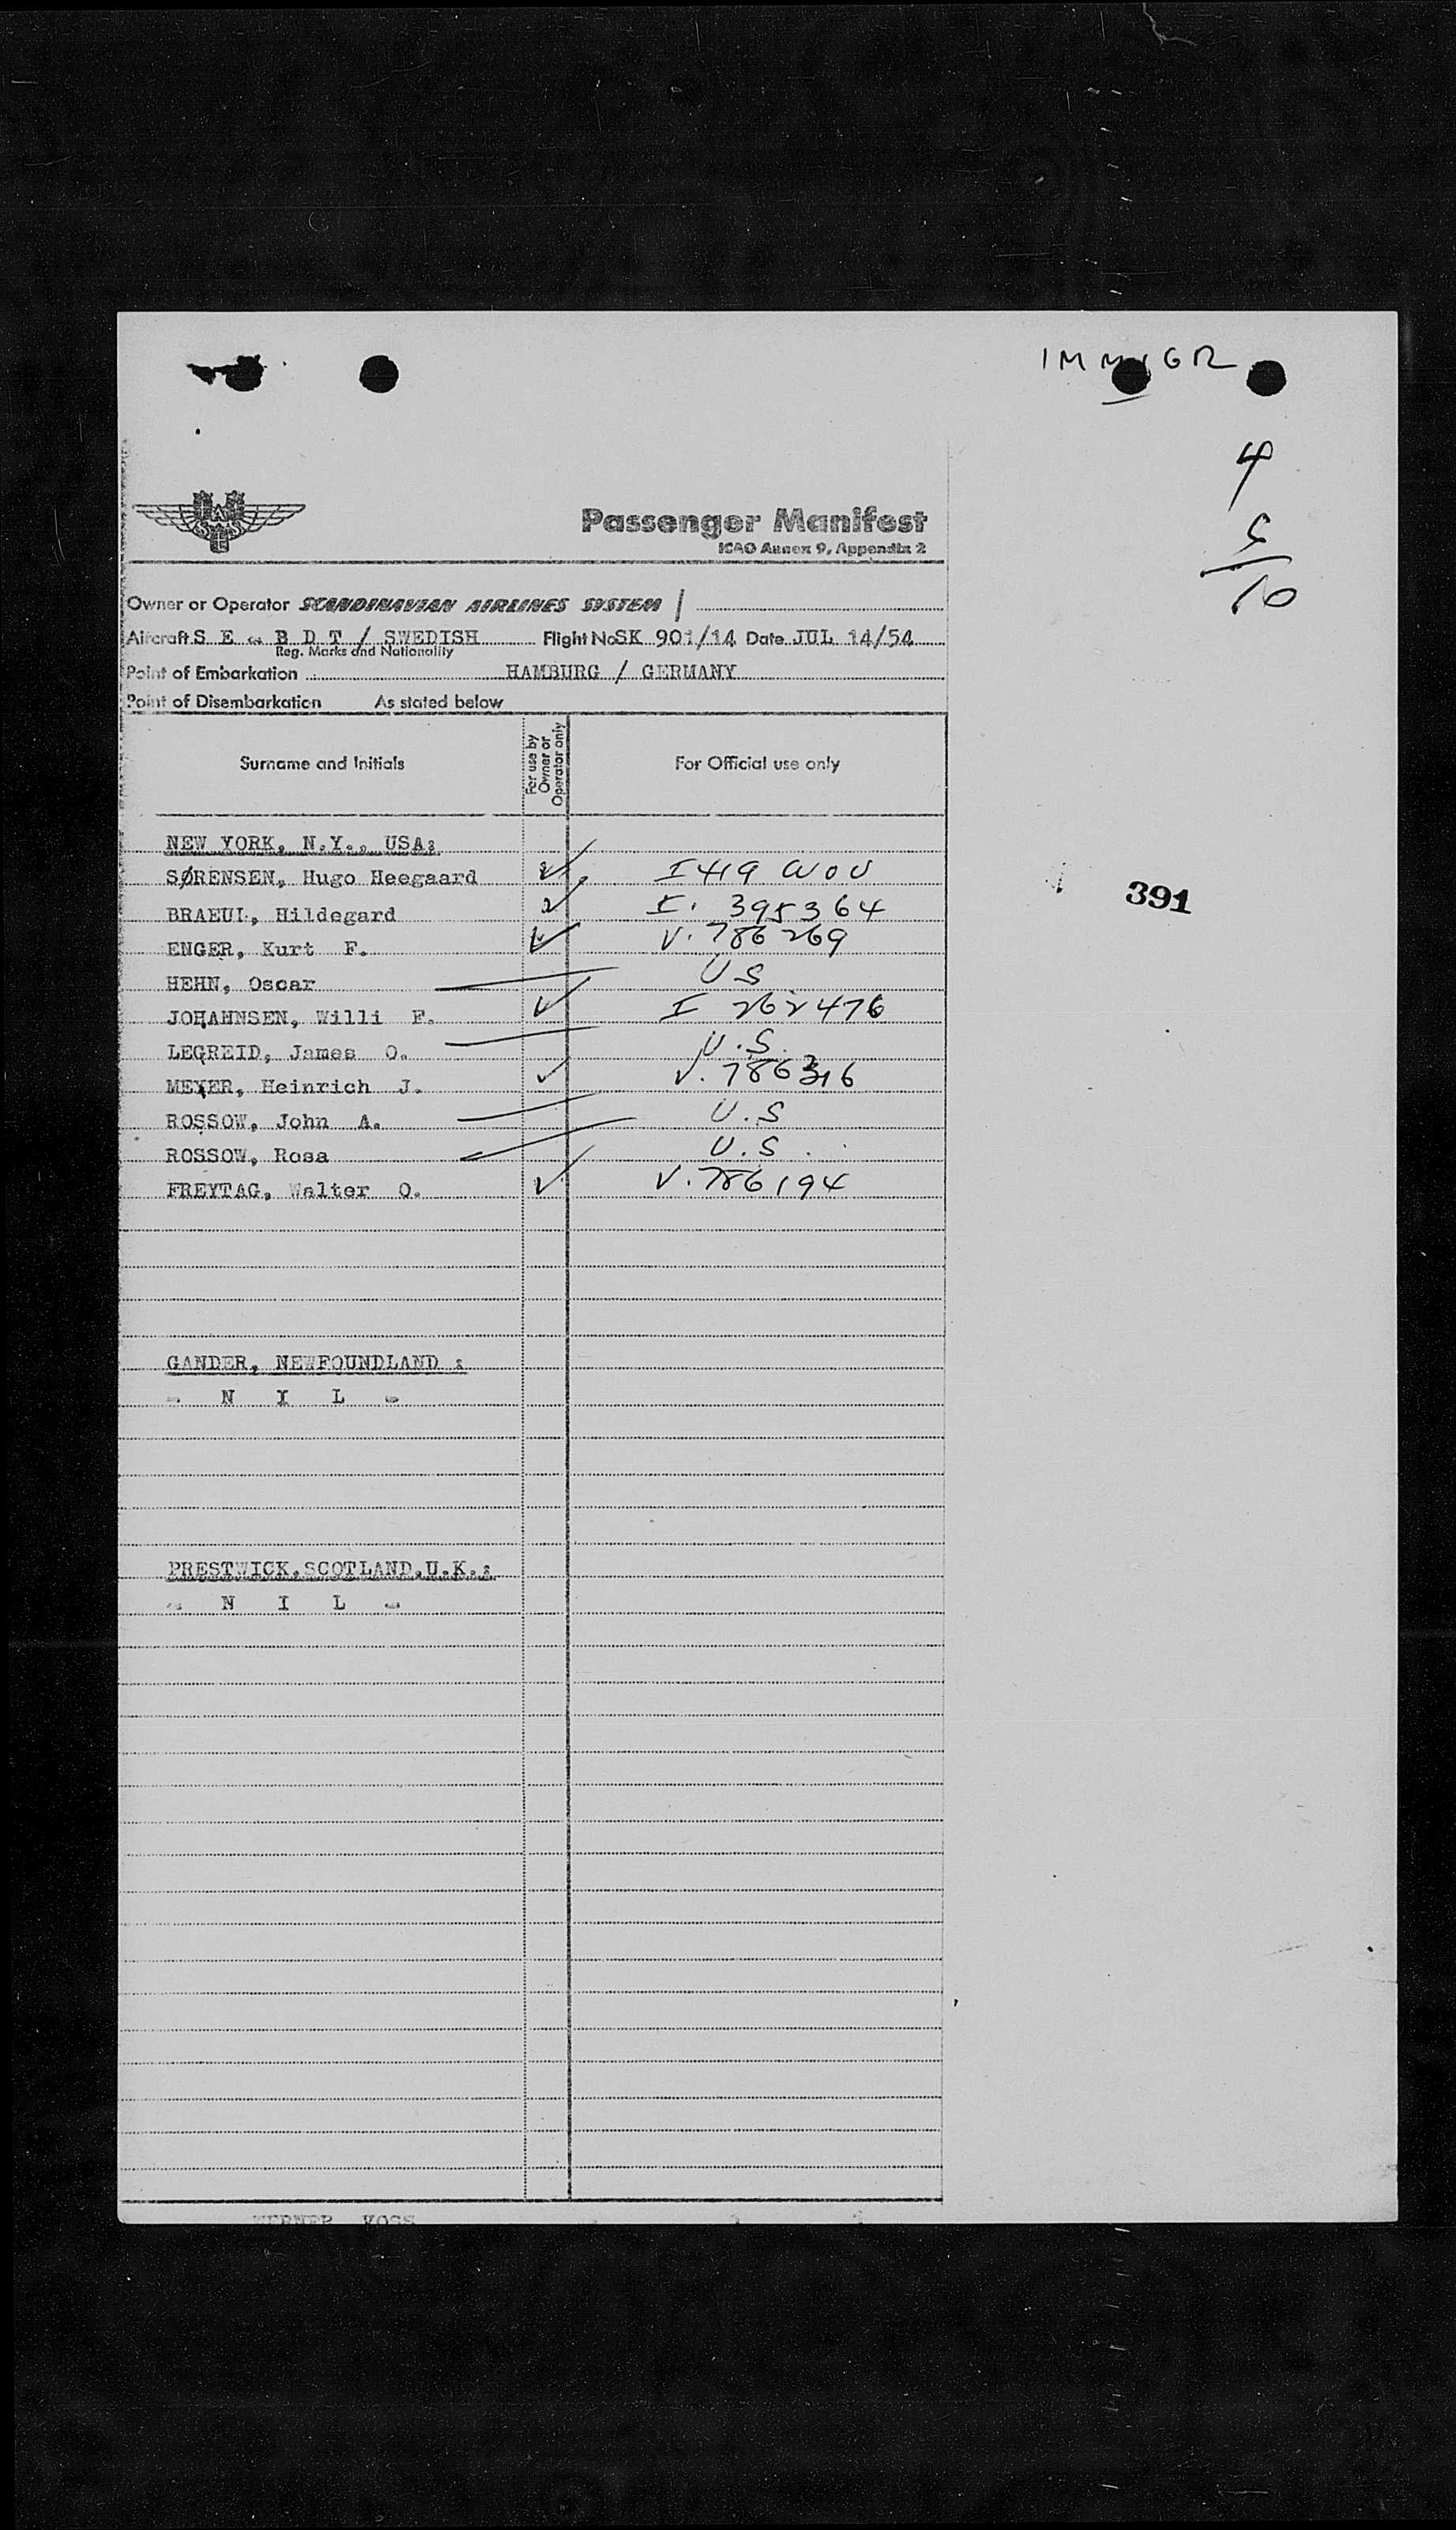 IMMIGR
4
6
10
Passenger Manifest
ICAO Annex 9, Appendix 2
Owner or Operator SCANDINAVIAN AIRLINES SYSTEM /
Aircraft S E - B D T / SWEDISH Flight No SK 901/14 Date JUL 14/54
Reg. Marks and Nationality
Point of Embarkation HAMBURG / GERMANY
Point of Disembarkation As stated below
Surname and Initials For use by Owner or Operator only For Official use only
NEW YORK, N.Y., USA:
SØRENSEN, Hugo Heegaard I 419 WOU
391
BRAEUL, Hildegard I. 395364
ENGER, Kurt F. V. 786269
HEHN, Oscar U S
JOHAHNSEN, Willi F. I 262476
LEGREID, James O. U.S.
MEYER, Heinrich J. V. 786316
ROSSOW, John A. U.S
ROSSOW, Rosa U.S.
FREYTAG, Walter O. V. 786194
GANDER, NEWFOUNDLAND :
- N I L -
PRESTWICK,SCOTLAND,U.K.:
- N I L -
WERNER KOSS